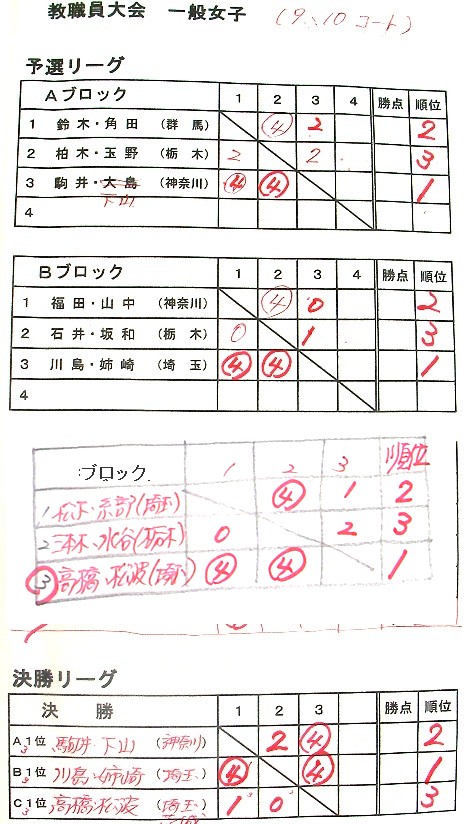 教職員大会 一般女子 (9、10コート)
予選リーグ
Aブロック 1 2 3 4 勝点 順位
1 鈴木・角田 (群馬) ④ 2 2
2 柏木・玉野 (栃木) 2 2 3
3 駒井・大島 (神奈川) ④ ④ 1
下山
4
Bブロック 1 2 3 4 勝点 順位
1 福田・山中 (神奈川) ④ 0 2
2 石井・坂和 (栃木) 0 1 3
3 川島・姉崎 (埼玉) ④ ④ 1
4
ブロック 1 2 3 順位
1 松下・糸部(埼玉) ④ 1 2
2 三本木・水谷(栃木) 0 2 3
③ 高橋・松波(埼玉) ④ ④ 1
決勝リーグ
決勝 1 2 3 勝点 順位
A1位 駒井・下山 (神奈川) 2 ④ 2
3
B1位 川島・姉崎 (埼玉) ④ ④ 1
3
C1位 高橋・松波 (埼玉) 1 0 3
3